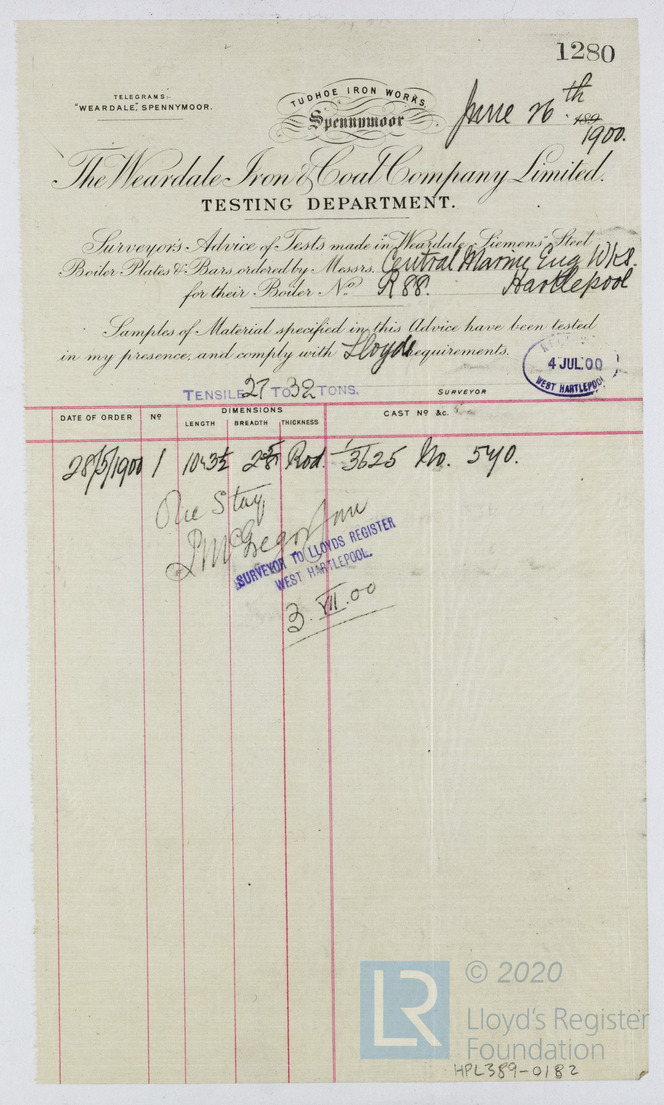 1280
TELEGRAMS:-
"WEARDALE," SPENNYMOOR.
TUDHOE IRON WORKS,
Spennymoor
June 26th 189
1900.
The Weardale Iron & Coal Company Limited.
TESTING DEPARTMENT.
Surveyor's Advice of Tests made in Weardale-Siemens-Steel
Boiler Plates & Bars, ordered by Messrs. Central Marine Eng Wks.
for their Boiler No. R88. Hartlepool
Samples of Material specified in this Advice have been tested
in my presence, and comply with Lloyds requirements.
4 JUL.00
WEST HARTLEPOOL
SURVEYOR
TENSILE 27 TO 32 TONS.
DATE OF ORDER No DIMENSIONS CAST No &c.
LENGTH BREADTH THICKNESS
28/5/1900 1 10.3½ 2⅝ Rod. 1/3625 No. 540.
One Stay
SURVEYOR TO LLOYDS REGISTER
WEST HARTLEPOOL.
3.VII.00
LR
© 2020
Lloyd's Register
Foundation
HPL389-0182